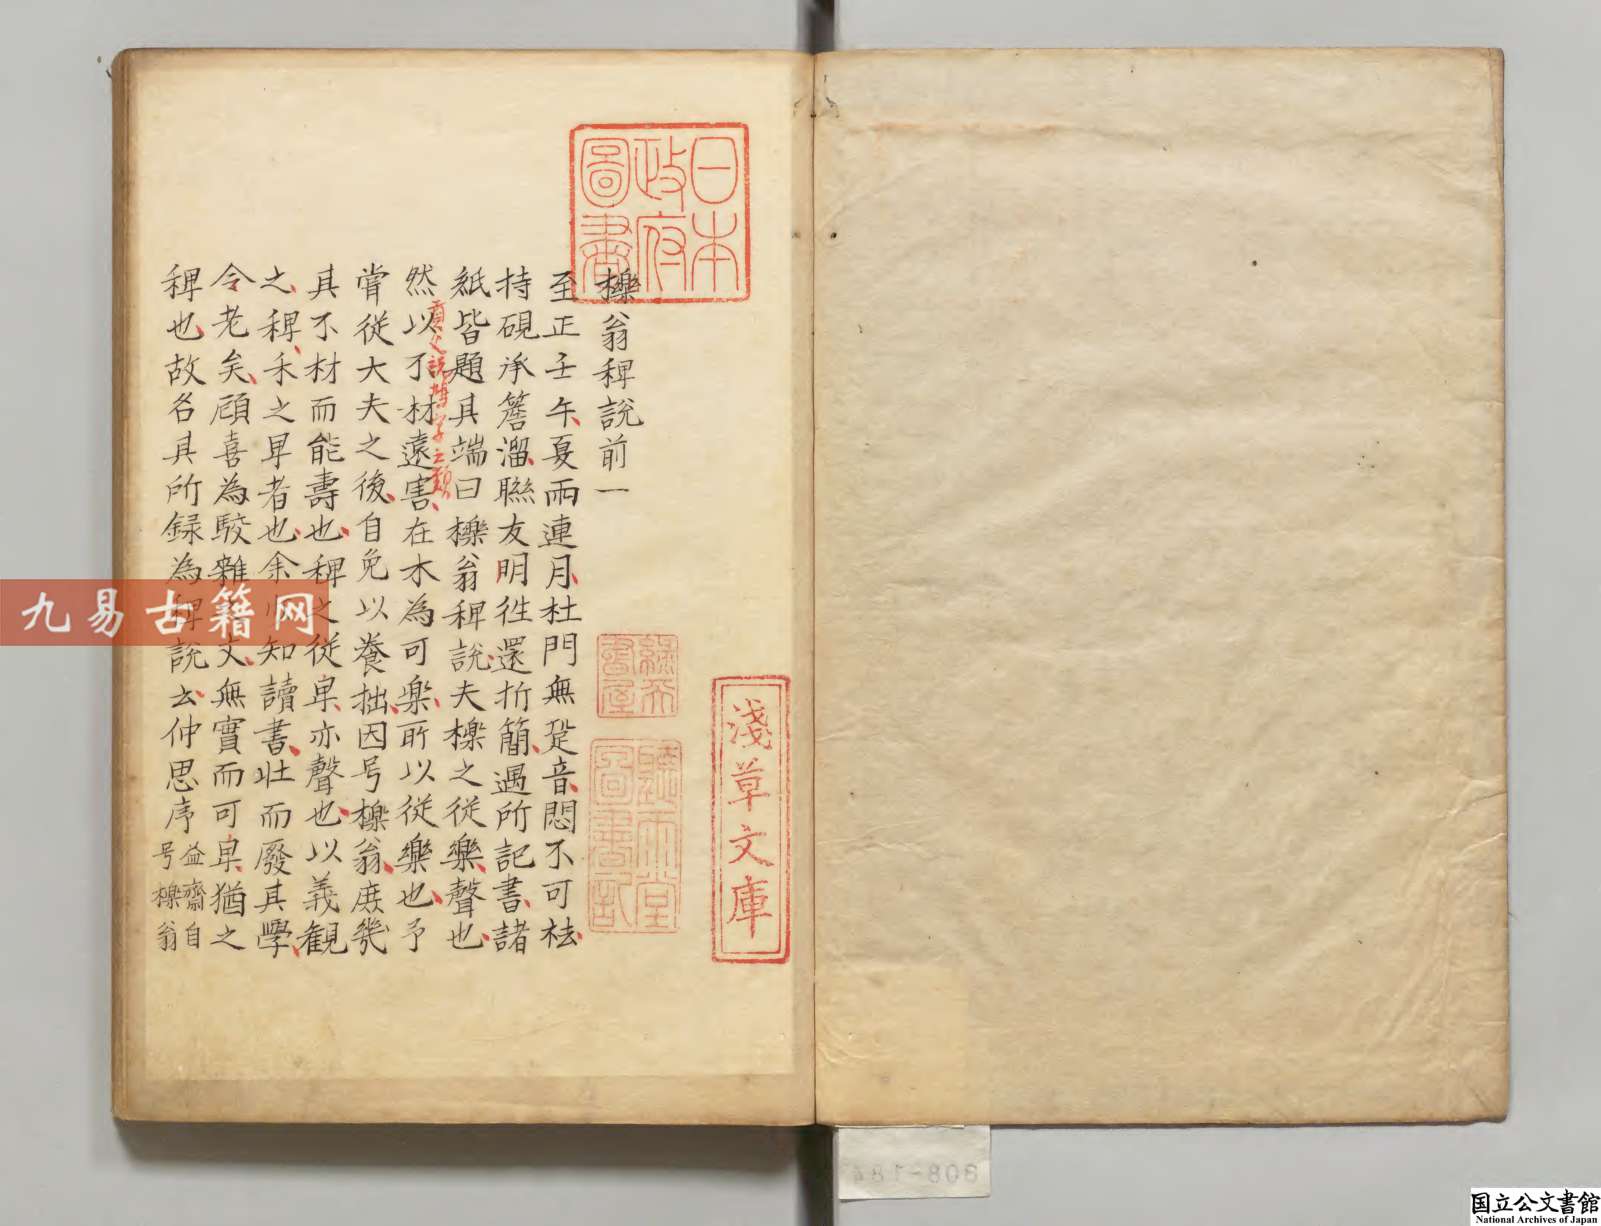 櫟翁稗說前一
至正壬午夏雨連月杜門無跫音悶不可袪
持硯承簷溜聯友朋徃還折簡遇所記書諸
紙皆題其端曰櫟翁稗說夫櫟之從樂聲也
然以不材遠害在木為可樂所以從樂也予
嘗從大夫之後自免以養拙因号櫟翁庶幾
其不材而能壽也稗之從卑亦聲也以義觀
之稗禾之卑者也余少知讀書壯而廢其學
今老矣頋喜為駮雜之文無實而可卑猶之
稗也故名其所録為稗說云仲思序
益齋自
号櫟翁
日本
政府
圖書
淺草文庫
九易古籍网
308-184
国立公文書館
National Archives of Japan